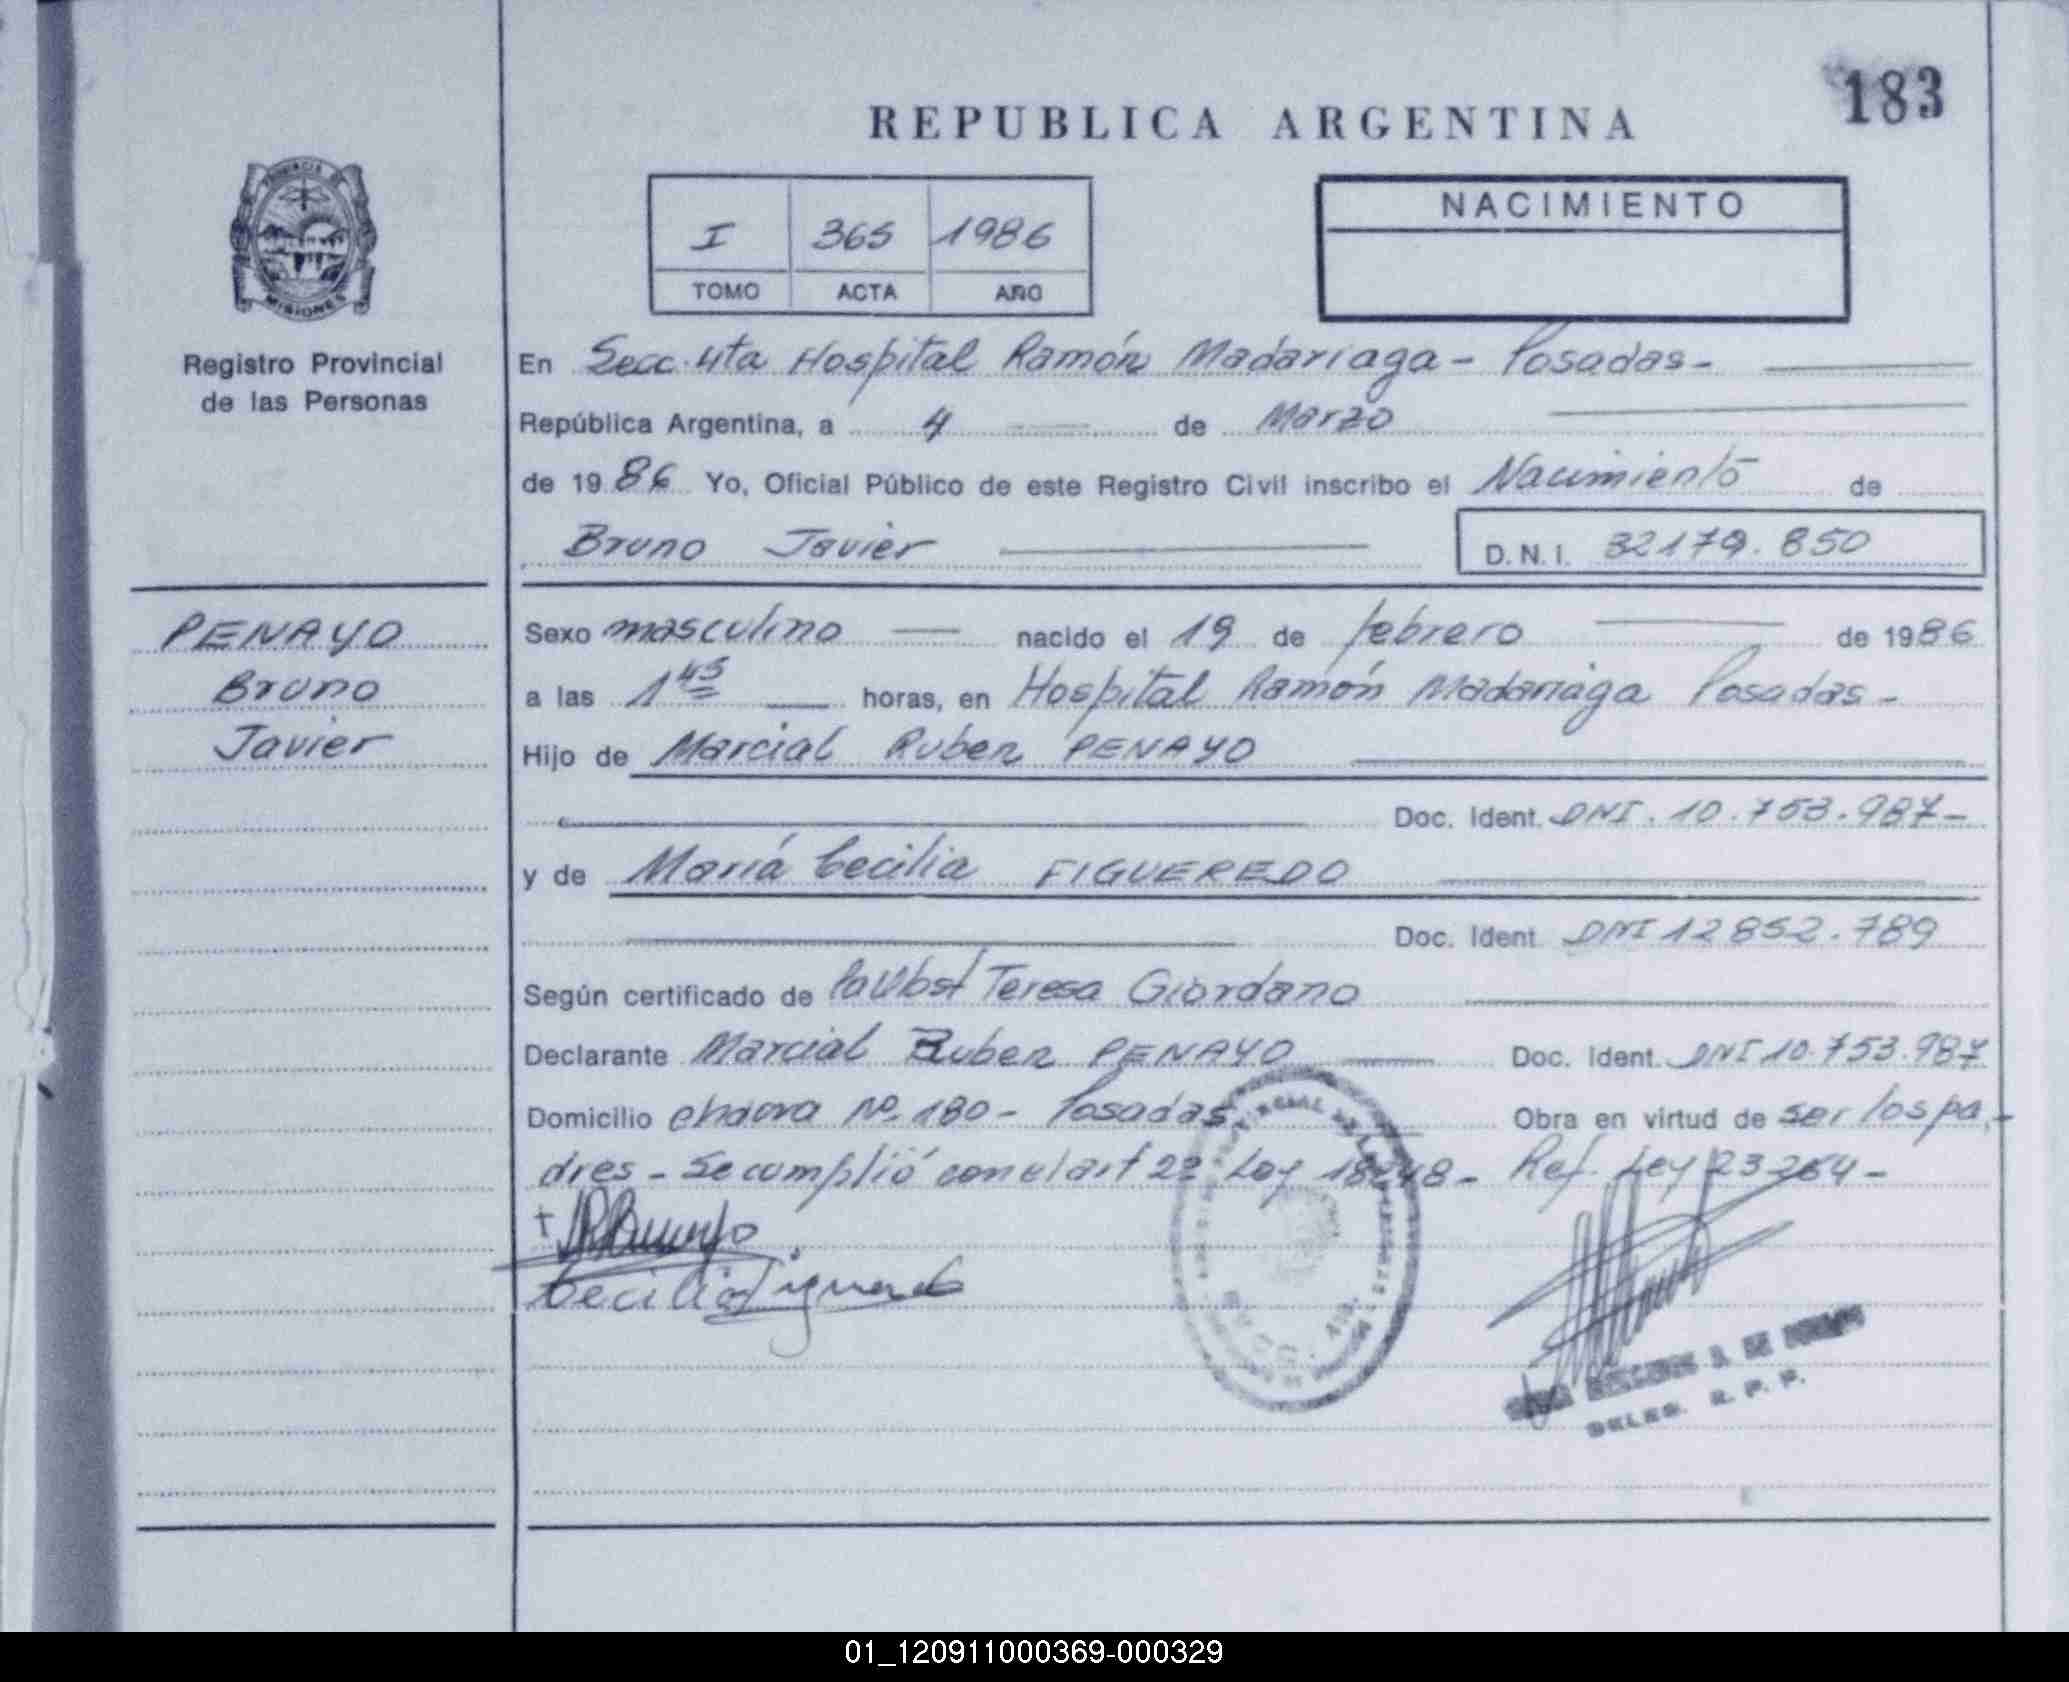 183
REPUBLICA ARGENTINA
PROVINCIA DE
MISIONES
Registro Provincial
de las Personas
I 365 1986
TOMO ACTA AÑO
NACIMIENTO
En Secc. 4ta Hospital Ramón Madariaga - Posadas -
República Argentina, a 4 de Marzo
de 1986 Yo, Oficial Público de este Registro Civil inscribo el Nacimiento de
Bruno Javier D.N.I. 32179.850
PENAYO
Bruno
Javier
Sexo masculino nacido el 19 de febrero de 1986
a las 1 45 horas, en Hospital Ramón Madariaga Posadas -
Hijo de Marcial Ruben PENAYO
Doc. Ident. DNI. 10.753.987-
y de María Cecilia FIGUEREDO
Doc. Ident DNI 12852.789
Según certificado de Teresa Giordano
Declarante Marcial Ruben PENAYO Doc. Ident. DNI 10.753.987
Domicilio chacra Nº 180 - Posadas Obra en virtud de ser los pa
dres - Se cumplió con el art 22 Ley 18248 - Ref. Ley 23264 -
Cecilia Figueredo
DELEG. R. P. P.
01_120911000369-000329